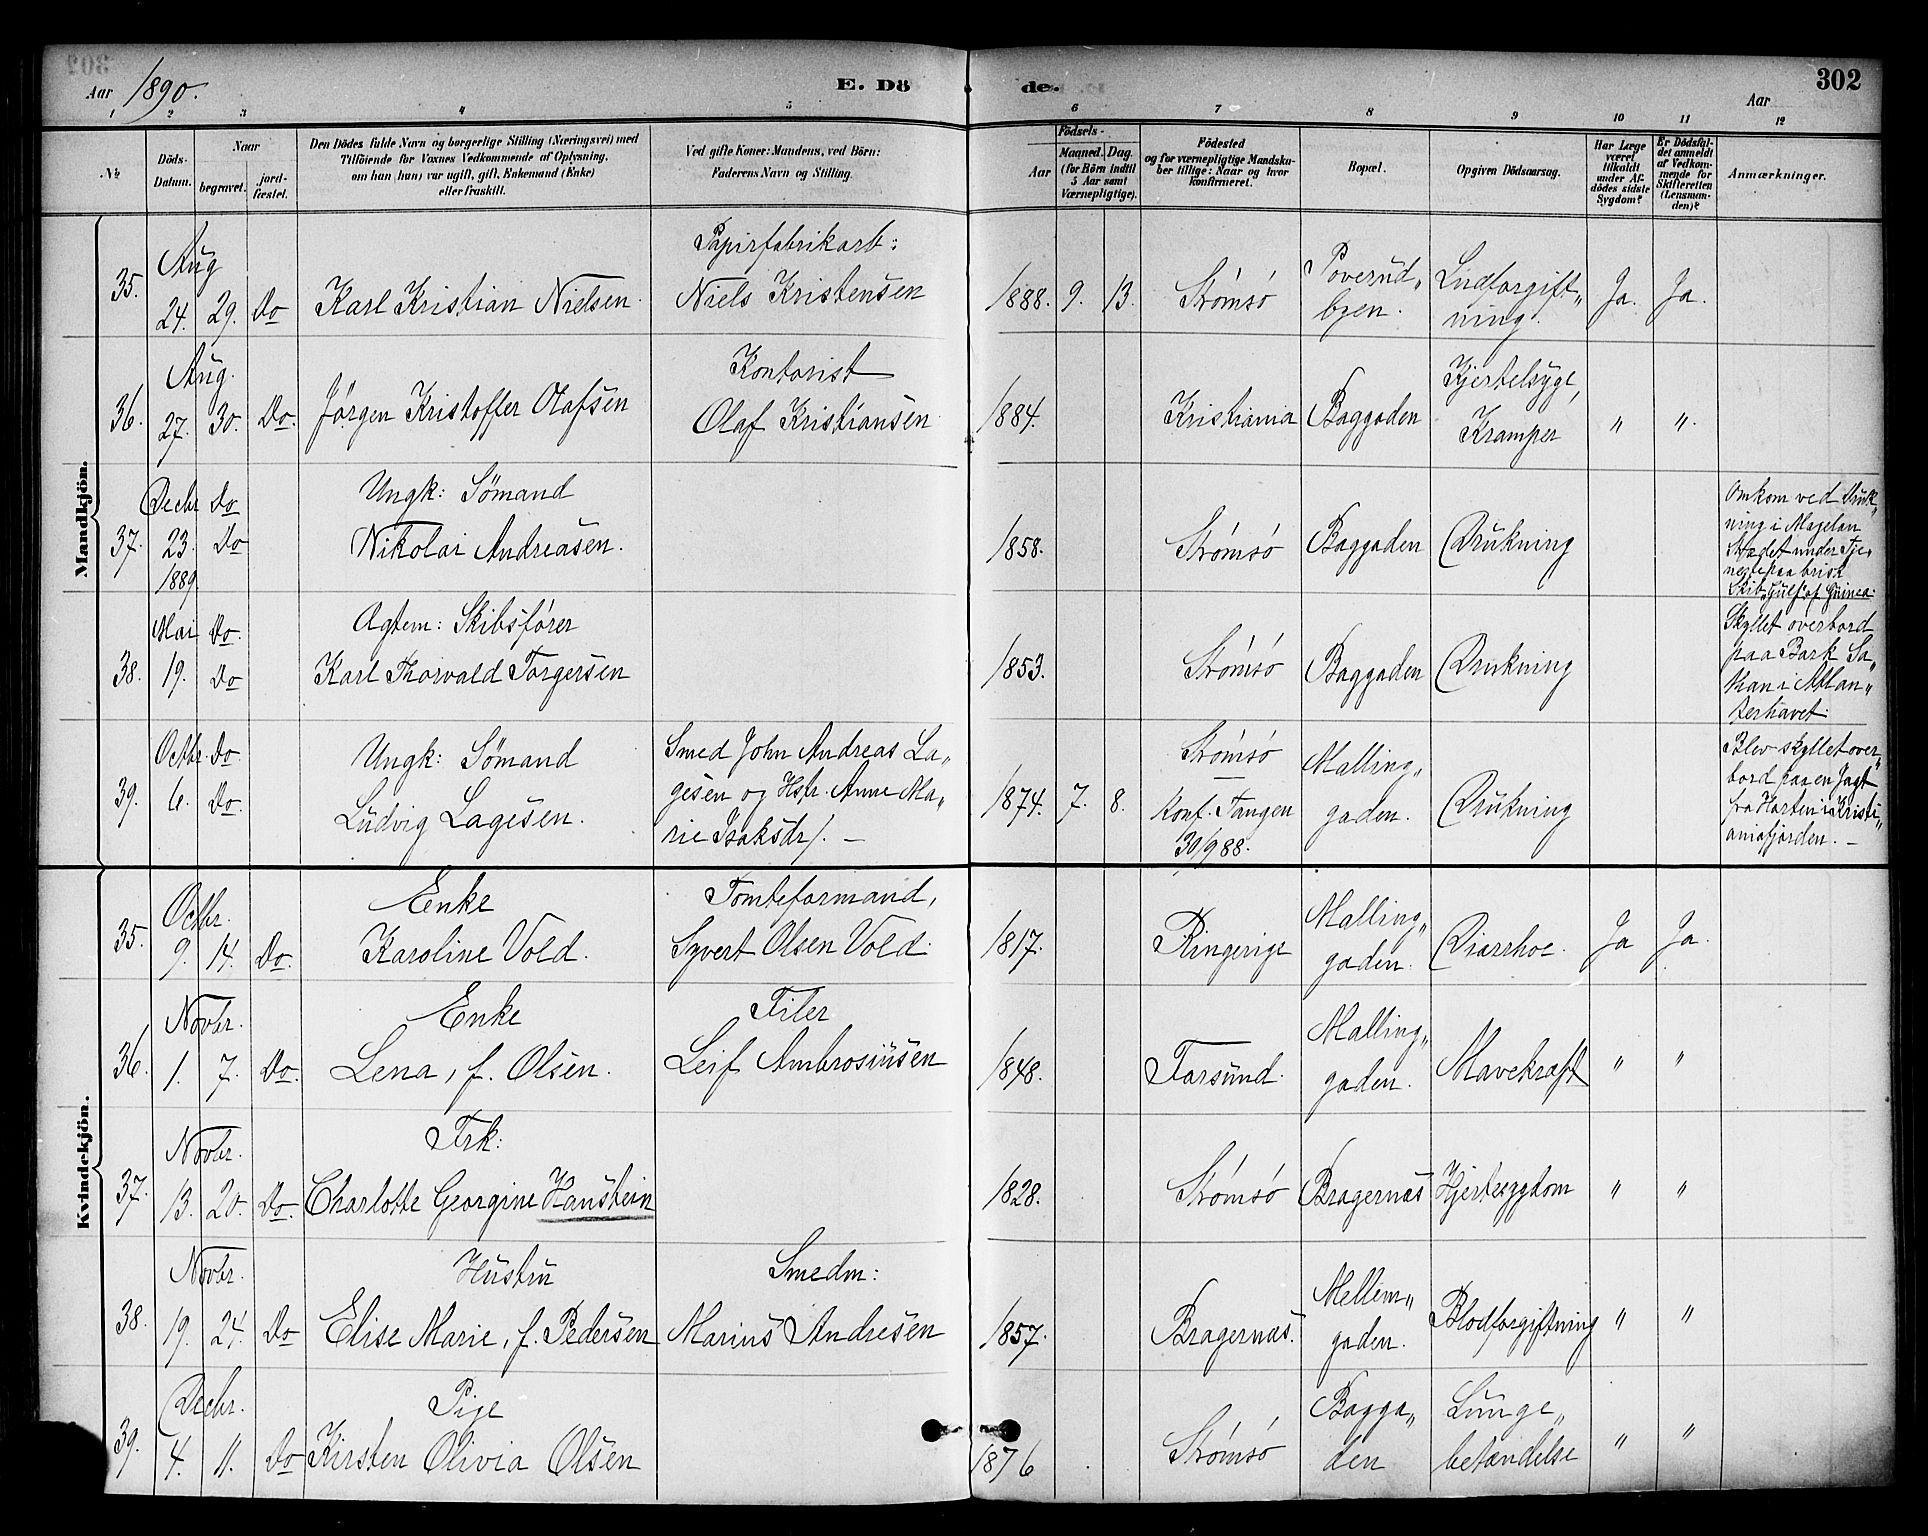 Aar 1890. E. Dö de. Aar 302
1 2 3 4 5 6 7 8 9 10 11 12
№
Döds-Datum.
Naar
begravet.
jord-fæstet.
Den Dödes fulde Navn og borgerlige Stilling (Næringsvei) med
Tilföiende for Voxnes Vedkommende af Oplysning,
om han (hun) var ugift, gift, Enkemand (Enke)
eller fraskilt.
Ved gifte Koner: Mandens, ved Börn:
Faderens Navn og Stilling.
Födsels-
Aar
Maaned. Dag.
(for Börn indtil
5 Aar samt
Værnepligtige).
Födested
og for værnepligtige Mandska-
ber tillige: Naar og hvor
konfirmeret.
Bopæl.
Opgiven Dödsaarsag.
Har Læge
været
tilkaldt
under Af-
dödes sidste
Sygdom?
Er Dödsfal-
det anmeldt
af Vedkom-
mende for
Skifteretten
(Lensman-
den)?
Anmærkninger.
Mandkjön.
35. Aug 24. 29. Do
Karl Kristian Nielsen.
Papirfabrikarb:
Niels Kristensen
1888. 9. 13. Strömsö
Poverud„
byen.
Ludforgift„
ning.
Ja. Ja.
36. Aug. 27. 30. Do.
Jörgen Kristoffer Olafsen
Kontorist
Olaf Kristiansen
1884. Kristiania Baggaden
Kjertelsyge,
Kramper
„ „.
37. Decbr 23. 1889. Do Do
Ungk: Sömand
Nikolai Andreasen.
1858. Strömsö Baggaden Drukning
Omkom ved Druk„
ning i Magelan
Strædet under Tje„
neste paa britisk
Skib „Gulf of Guinea.
38. Mai 19. Do. Do
Ogtem: Skibsförer
Karl Thorvald Torgersen
1853. Strömsö Baggaden Drukning
Skyllet overbord
paa Bark Sa„
tkan i Atlan„
terhavet.
39. Octbr. 6. Do. Do.
Ungk: Sömand
Ludvig Lagesen.
Smed John Andreas La„
gesen og Hstr. Anne Ma„
rie Isaksdr/. —
1874. 7. 8.
Strömsö
—
Konf. Tangen
30/9 88.
Malling„
gaden.
Drukning
Blev skyllet over„
bord paa en Jagt
fra Horten i Kristi„
aniafjorden. —
Kvindekjön.
35. Octbr. 9. 14. Do.
Enke
Karoline Vold.
Tomteformand,
Syvert Olsen Vold.
1817. Ringerige
Malling„
gaden.
Diarrhoe. Ja Ja.
36. Novbr. 1. 7. Do.
Enke
Lena, f. Olsen.
Filer
Leif Ambrosiusen
1848. Farsund.
Malling„
gaden.
Mavekræft „ „
37. Novbr. 13. 20. Do.
Frk:
Charlotte Georgine Hanstein
1828. Strömsö Bragernæs Hjertesygdom „ „
38. Novbr. 19. 24. Do
Hustru
Elise Marie, f. Pedersen
Smedm:
Marius Andresen
1857. Bragernæs.
Mellem„
gaden.
Blodforgiftning „ „
39. Decbr. 4. 11. Do
Pige
Kirsten Olivia Olsen
1876 Strömsö
Bagga„
den
Lunge„
betændelse
„ „